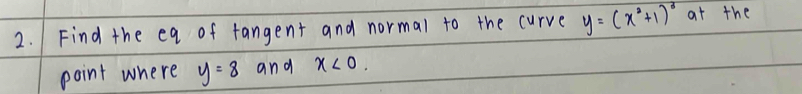 2. Find the eq of tangent and normal to the curve y = (x²+1)³ at the
point where y = 8 and x < 0.